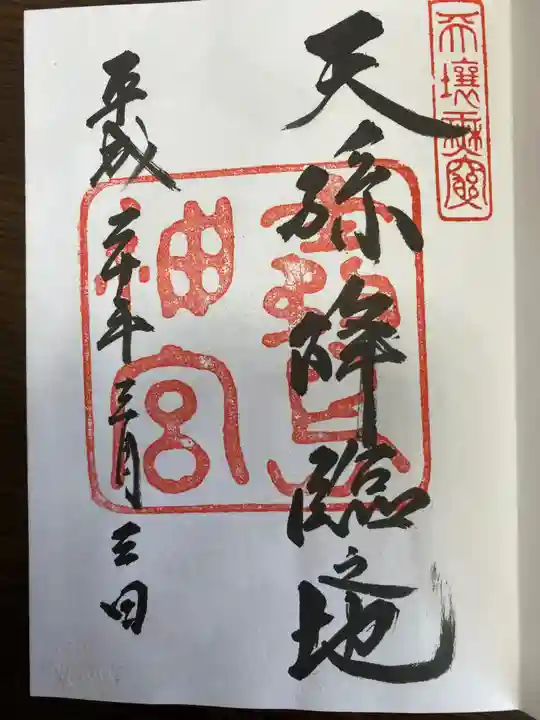 天壤無窮
天孫降臨之地
神宮
平成二十年三月三日